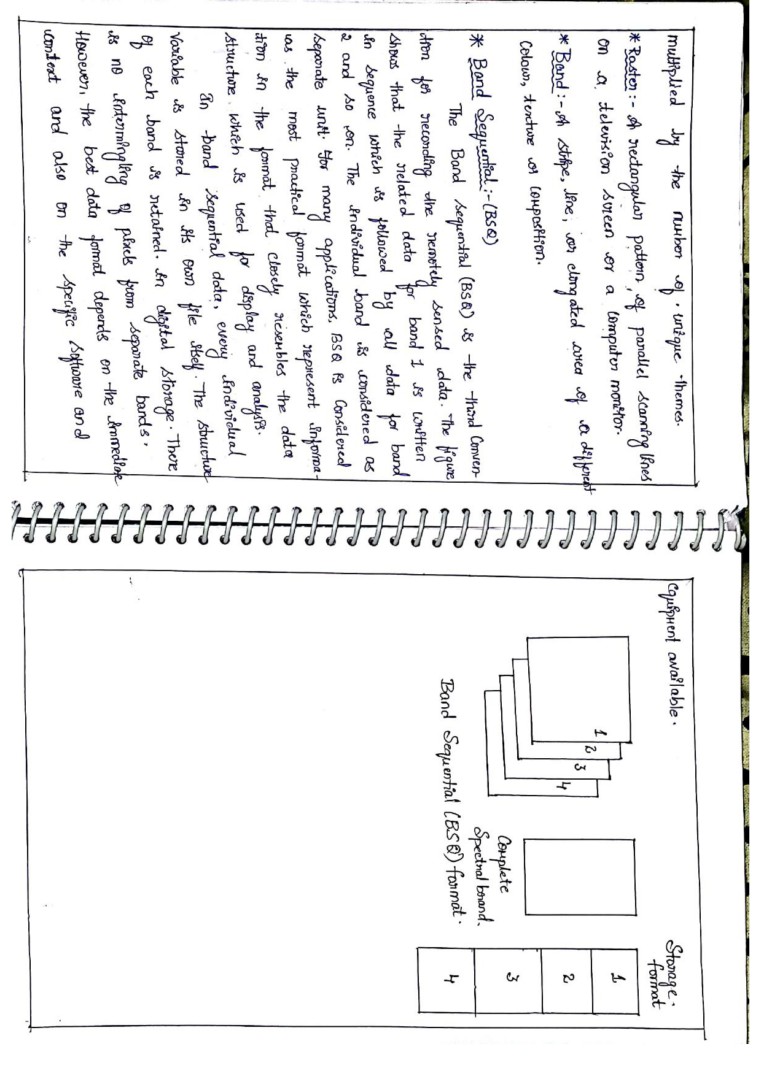 multiplied by the number of unique themes.
* Raster:- A rectangular pattern of parallel scanning lines
on a television screen or a computer monitor.
* Band:- A stripe, line, or elongated area of a different
colour, texture or composition.
* Band Sequential:- (BSQ)
The Band sequential (BSQ) is the third conven-
tion for recording the remotely sensed data. The figure
shows that the related data for band 1 is written
in sequence which is followed by all data for band
2 and so on. The individual band is considered as
separate unit. For many applications, BSQ is considered
as the most practical format which represent informa-
tion in the format that closely resembles the data
structure which is used for display and analysis.
In band sequential data, every individual
variable is stored in its own file itself. The structure
of each band is retained in digital storage. There
is no intermingling of pixels from separate bands.
However, the best data format depends on the immediate
context and also on the specific software and
equipment available.
1
2
3
4
Complete
Spectral band.
Storage
format
1
2
3
4
Band Sequential (BSQ) format.